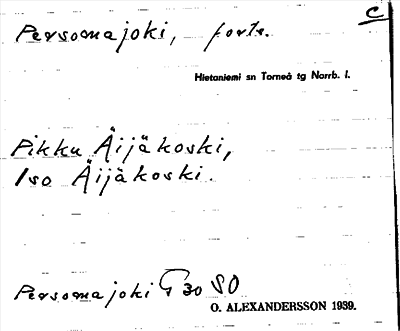 C
Persomajoki, forts.
Hietaniemi sn Torneå tg Norrb. l.
Pikku Äijäkoski,
Iso Äijäkoski.
Persomajoki G 30 SO
O. ALEXANDERSSON 1939.